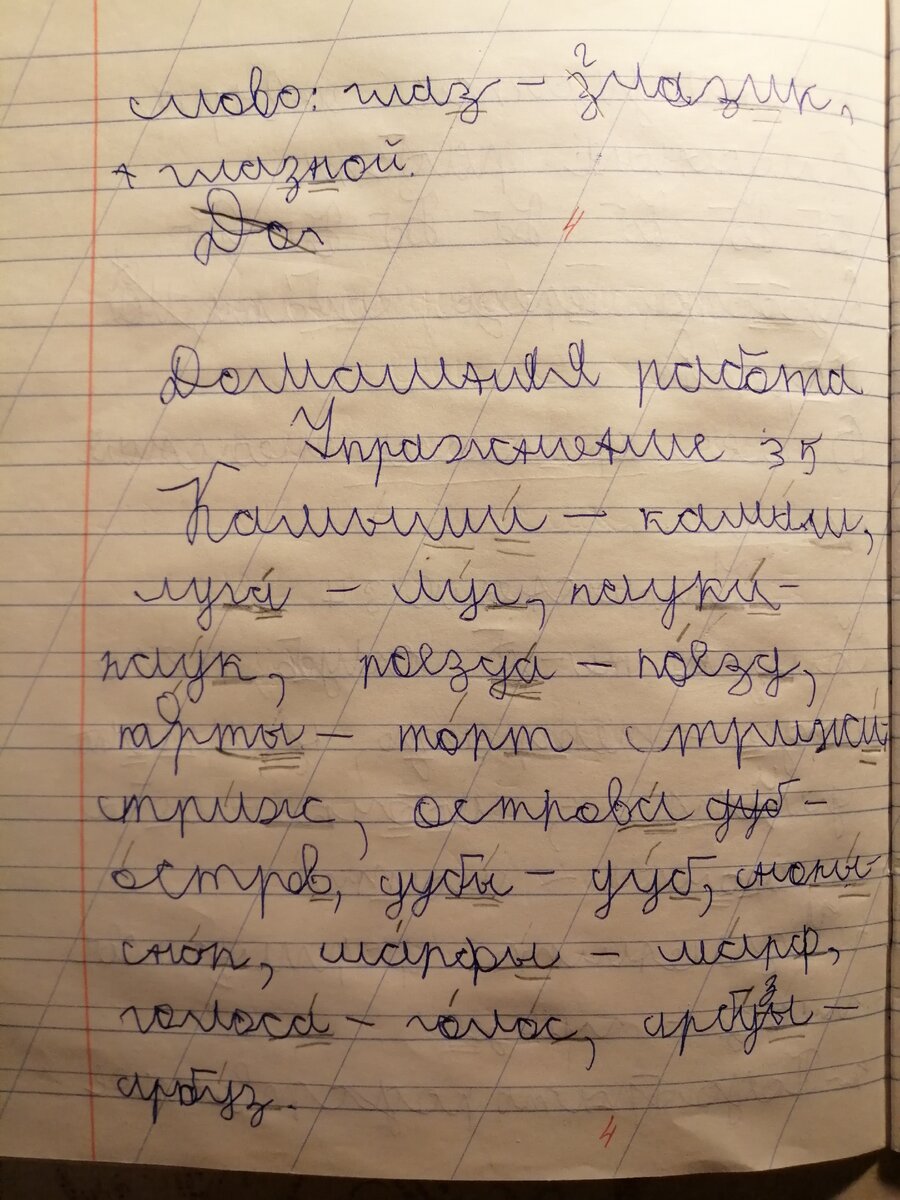 слово: глаз – глазик,
глазной.
До
4
Домашняя работа
Упражнение 35
Камыши – камыш,
луга – луг, пауки –
паук, поезда – поезд,
торты – торт стрижи –
стриж, острова дуб –
остров, дубы – дуб, снопы –
сноп, шарфы – шарф,
голоса – голос, арбузы –
арбуз.
4